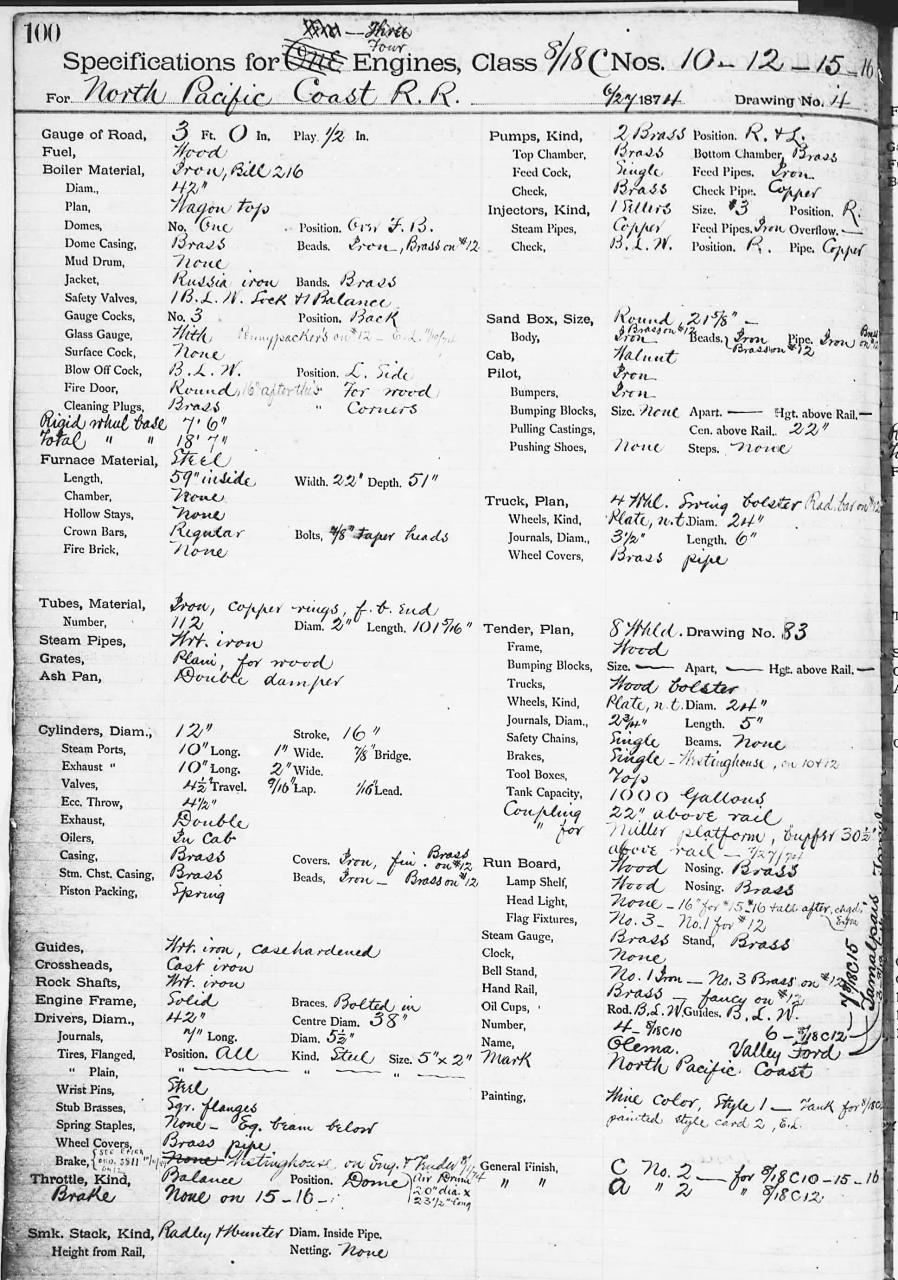 100
Three
Four
Specifications for One Engines, Class 8/18 C Nos. 10 - 12 - 15 - 16
For North Pacific Coast R. R. 6/27 1874 Drawing No. 4
Gauge of Road, 3 Ft. 0 In. Play. 1/2 In.
Fuel, Wood
Boiler Material, Iron, Bill 216
Diam., 42"
Plan, Wagon top
Domes, No. One Position. Over F. B.
Dome Casing, Brass Beads. Iron, Brass on #12
Mud Drum, None
Jacket, Russia iron Bands. Brass
Safety Valves, 1 B. L. W. Lock & 1 Balance
Gauge Cocks, No. 3 Position. Back
Glass Gauge, With Pennypacker's on #12 - E. L.
Surface Cock, None
Blow Off Cock, B. L. W. Position. L. Side
Fire Door, Round, 16" after this For wood
Cleaning Plugs, Brass " Corners
Rigid wheel base 7' 6"
Total " " 18' 7"
Furnace Material, Steel
Length, 59" inside Width. 22" Depth. 51"
Chamber, None
Hollow Stays, None
Crown Bars, Regular Bolts, 7/8" taper heads
Fire Brick, None
Tubes, Material, Iron, copper rings, f. b. end
Number, 112 Diam. 2" Length. 101 5/16"
Steam Pipes, Wrt. iron
Grates, Plain, for wood
Ash Pan, Double damper
Cylinders, Diam., 12" Stroke, 16"
Steam Ports, 10" Long. 1" Wide. 7/8" Bridge.
Exhaust " 10" Long. 2" Wide.
Valves, 4 1/2" Travel. 9/16" Lap. 1/16" Lead.
Ecc. Throw, 4 1/2"
Exhaust, Double
Oilers, In Cab
Casing, Brass Covers. Iron, fin Brass on #12
Stm. Chst. Casing, Brass Beads, Iron - Brass on #12
Piston Packing, Spring
Guides, Wrt. iron, casehardened
Crossheads, Cast iron
Rock Shafts, Wrt. iron
Engine Frame, Solid Braces. Bolted in
Drivers, Diam., 42" Centre Diam. 38"
Journals, 7" Long. Diam. 5 1/2"
Tires, Flanged, Position. All Kind. Steel Size. 5" x 2"
" Plain, " — " — " —
Wrist Pins, Steel
Stub Brasses, Sqr. flanges
Spring Staples, None - Eq. beam below
Wheel Covers, Brass pipe
Brake, None Westinghouse on Eng. & Tender
Throttle, Kind, Balance Position. Dome Air Drum 20" dia. x 23 1/2" long
Brake None on 15 - 16 -
Smk. Stack, Kind, Radley & Hunter Diam. Inside Pipe.
Height from Rail, Netting. None
Pumps, Kind, 2 Brass Position. R. & L.
Top Chamber, Brass Bottom Chamber, Brass
Feed Cock, Single Feed Pipes. Iron
Check, Brass Check Pipe. Copper
Injectors, Kind, 1 Sellers Size. #3 Position. R.
Steam Pipes, Copper Feed Pipes. Iron Overflow. —
Check, B. L. W. Position. R. Pipe. Copper
Sand Box, Size, Round, 21 5/8" -
Body, Iron Brass on #12 Beads. Iron Brass on #12 Pipe. Iron Brass on #12
Cab, Walnut
Pilot, Iron
Bumpers, Iron
Bumping Blocks, Size. None Apart. — Hgt. above Rail. —
Pulling Castings, Cen. above Rail. 22"
Pushing Shoes, None Steps. None
Truck, Plan, 4 Whl. Swing bolster Rad. bar on #12
Wheels, Kind, Plate, n. t. Diam. 24"
Journals, Diam., 3 1/2" Length. 6"
Wheel Covers, Brass pipe
Tender, Plan, 8 Whld. Drawing No. 83
Frame, Wood
Bumping Blocks, Size. — Apart, — Hgt. above Rail. —
Trucks, Wood bolster
Wheels, Kind, Plate, n. t. Diam. 24"
Journals, Diam., 2 3/4" Length. 5"
Safety Chains, Single Beams. None
Brakes, Single - Westinghouse, on 10 & 12
Tool Boxes, Top
Tank Capacity, 1000 Gallons
Coupling 22" above rail
" for Miller platform, buffer 30 1/2"
above rail -
Run Board, Wood Nosing. Brass
Lamp Shelf, Wood Nosing. Brass
Head Light, None - 16" for #15 - 16 & all after, chgd. Extra
Flag Fixtures, No. 3 - No. 1 for #12
Steam Gauge, Brass Stand, Brass
Clock, None
Bell Stand, No. 1 Iron - No. 3 Brass on #12
Hand Rail, Brass - fancy on #12
Oil Cups, Rod. B. L. W. Guides. B. L. W.
Number, 4 - 8/18C10 6 - 8/18C12 - 7 - 8/18C15
Name, Olema. Valley Ford Tamalpais
Mark North Pacific Coast
Painting, Wine color, Style 1 - Tank for 8/18C
painted style card 2, E. L.
General Finish, C No. 2 - for 8/18C10 - 15 - 16
" " A " 2 " 8/18C12